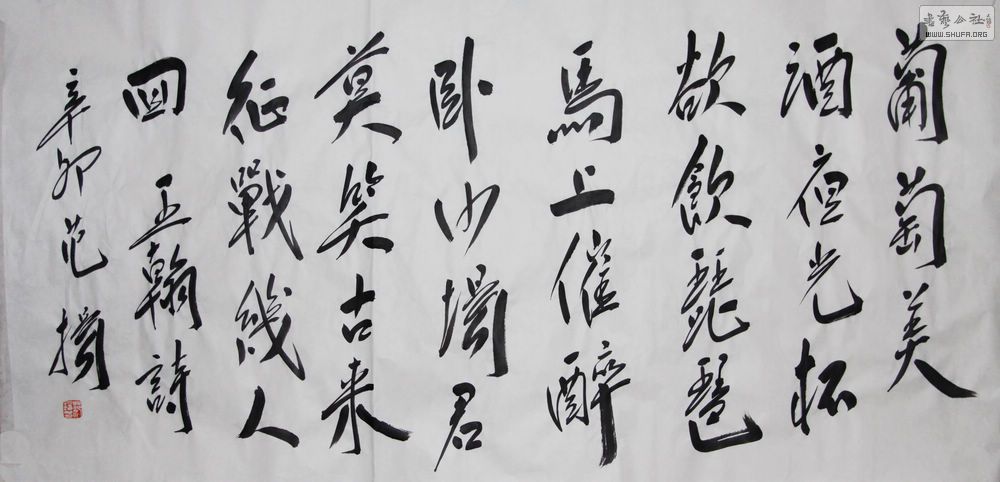 葡萄美
酒夜光杯
欲飲琵琶
馬上催醉
卧沙場君
莫笑古來
征戰幾人
回 王翰詩
辛卯范揚
書藝公社
WWW.SHUFA.ORG